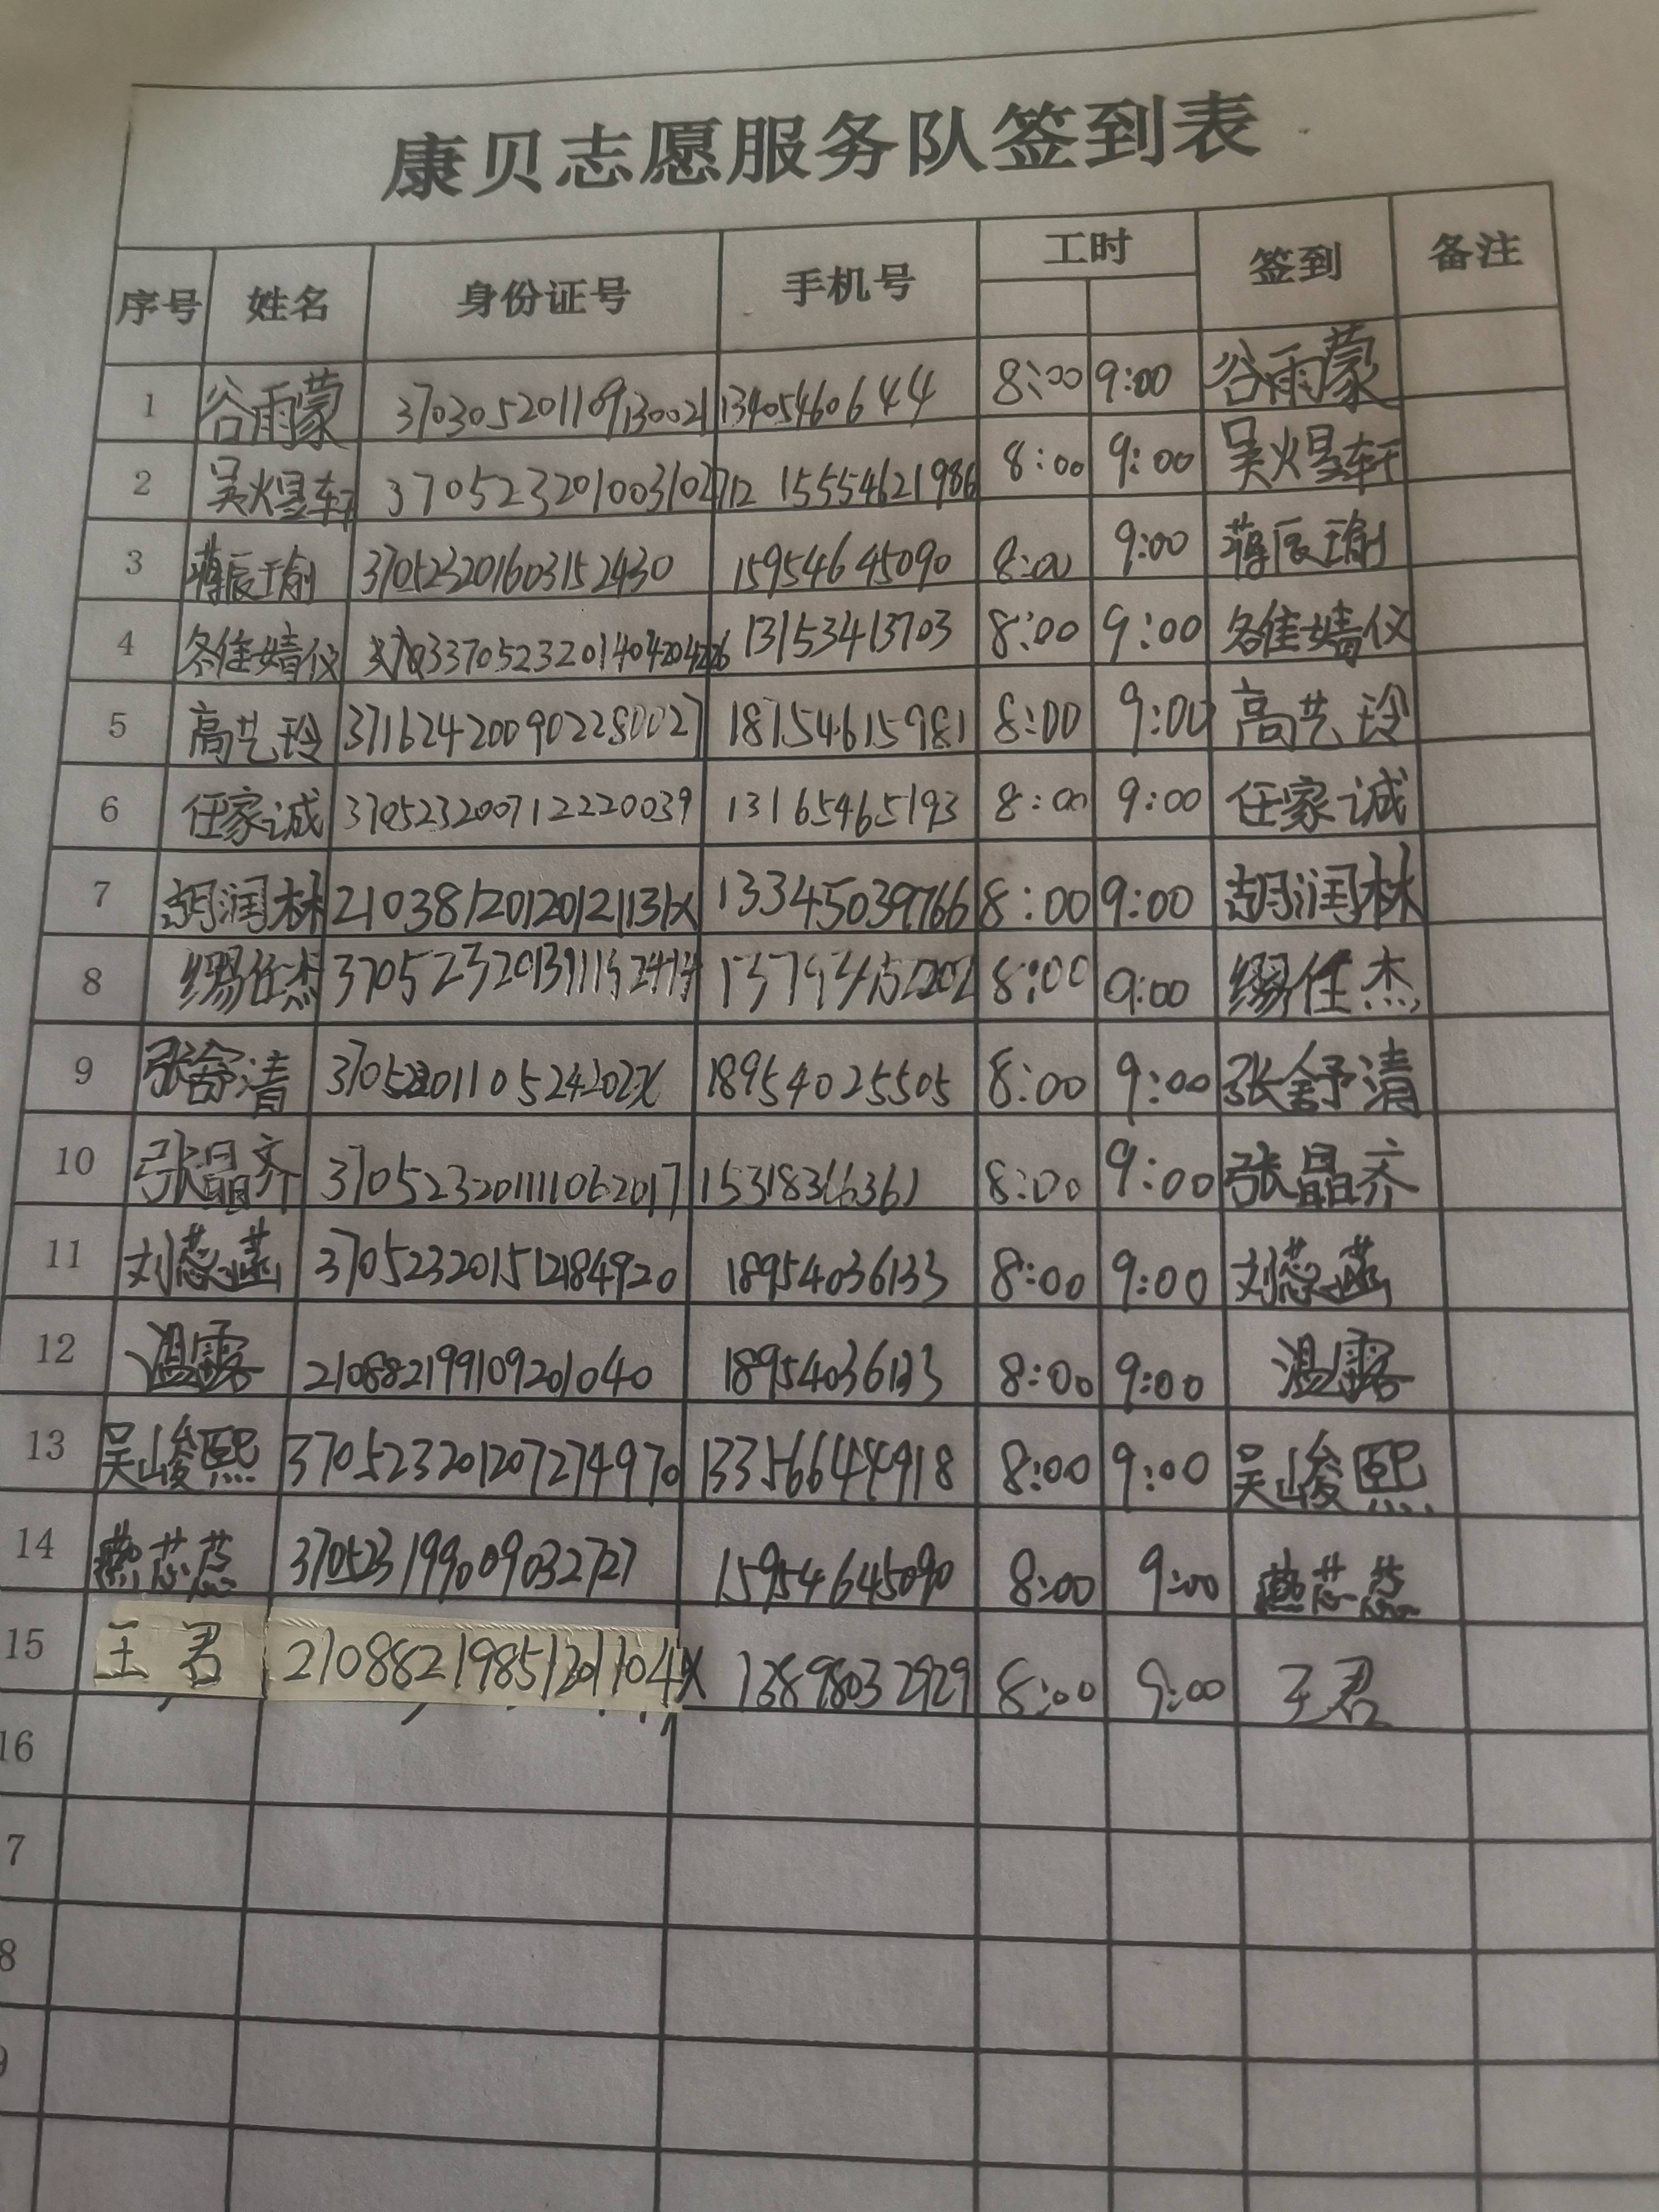 康贝志愿服务队签到表
序号 姓名 身份证号 手机号 工时 签到 备注
1 谷雨蒙 370305201109130021 13405460644 8:00 9:00 谷雨蒙
2 吴煜轩 370523201003102712 15554621986 8:00 9:00 吴煜轩
3 蒋辰瑜 370523201603152430 15954645090 8:00 9:00 蒋辰瑜
4 13153413703 8:00 9:00
5 高艺玲 371624200902280027 18754615981 8:00 9:00 高艺玲
6 任家诚 370523200712220039 13165465193 8:00 9:00 任家诚
7 胡润林 21038120120121131X 13345039766 8:00 9:00 胡润林
8 缪任杰 8:00 9:00 缪任杰
9 张舒清 18954025505 8:00 9:00 张舒清
10 张晶齐 370523201111062017 15318366361 8:00 9:00 张晶齐
11 刘蕊菡 370523201512184920 18954036133 8:00 9:00 刘蕊菡
12 温露 210882199109201040 18954036133 8:00 9:00 温露
13 吴峻熙 370523201207274970 13356644918 8:00 9:00 吴峻熙
14 燕芯蕊 370523199009032727 15954645090 8:00 9:00 燕芯蕊
15 王君 21088219851201104X 13898032929 8:00 9:00 王君
16
7
8